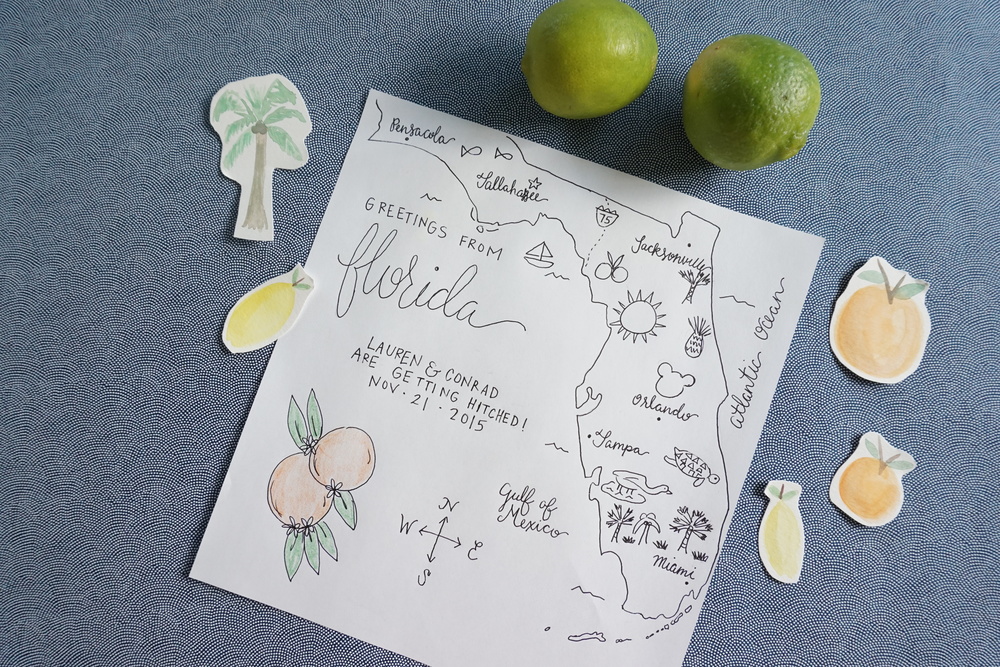 Pensacola
Tallahassee
75
Jacksonville
GREETINGS FROM
florida
LAUREN & CONRAD
ARE GETTING HITCHED!
NOV · 21 · 2015
atlantic ocean
orlando
Tampa
Gulf of
Mexico
Miami
N
W
E
S